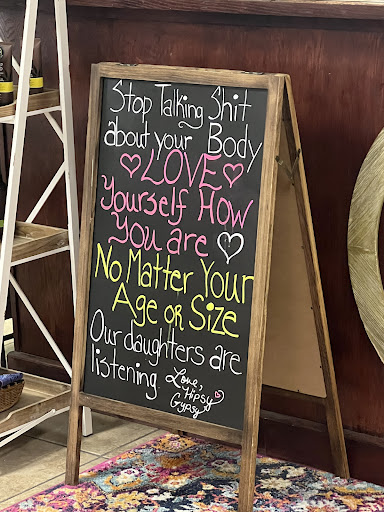 Stop Talking Shit
about your Body
♡LOVE♡
Yourself How
You are ♡
No Matter Your
Age or Size
Our daughters are
listening Love,
Hipsy
Gypsy